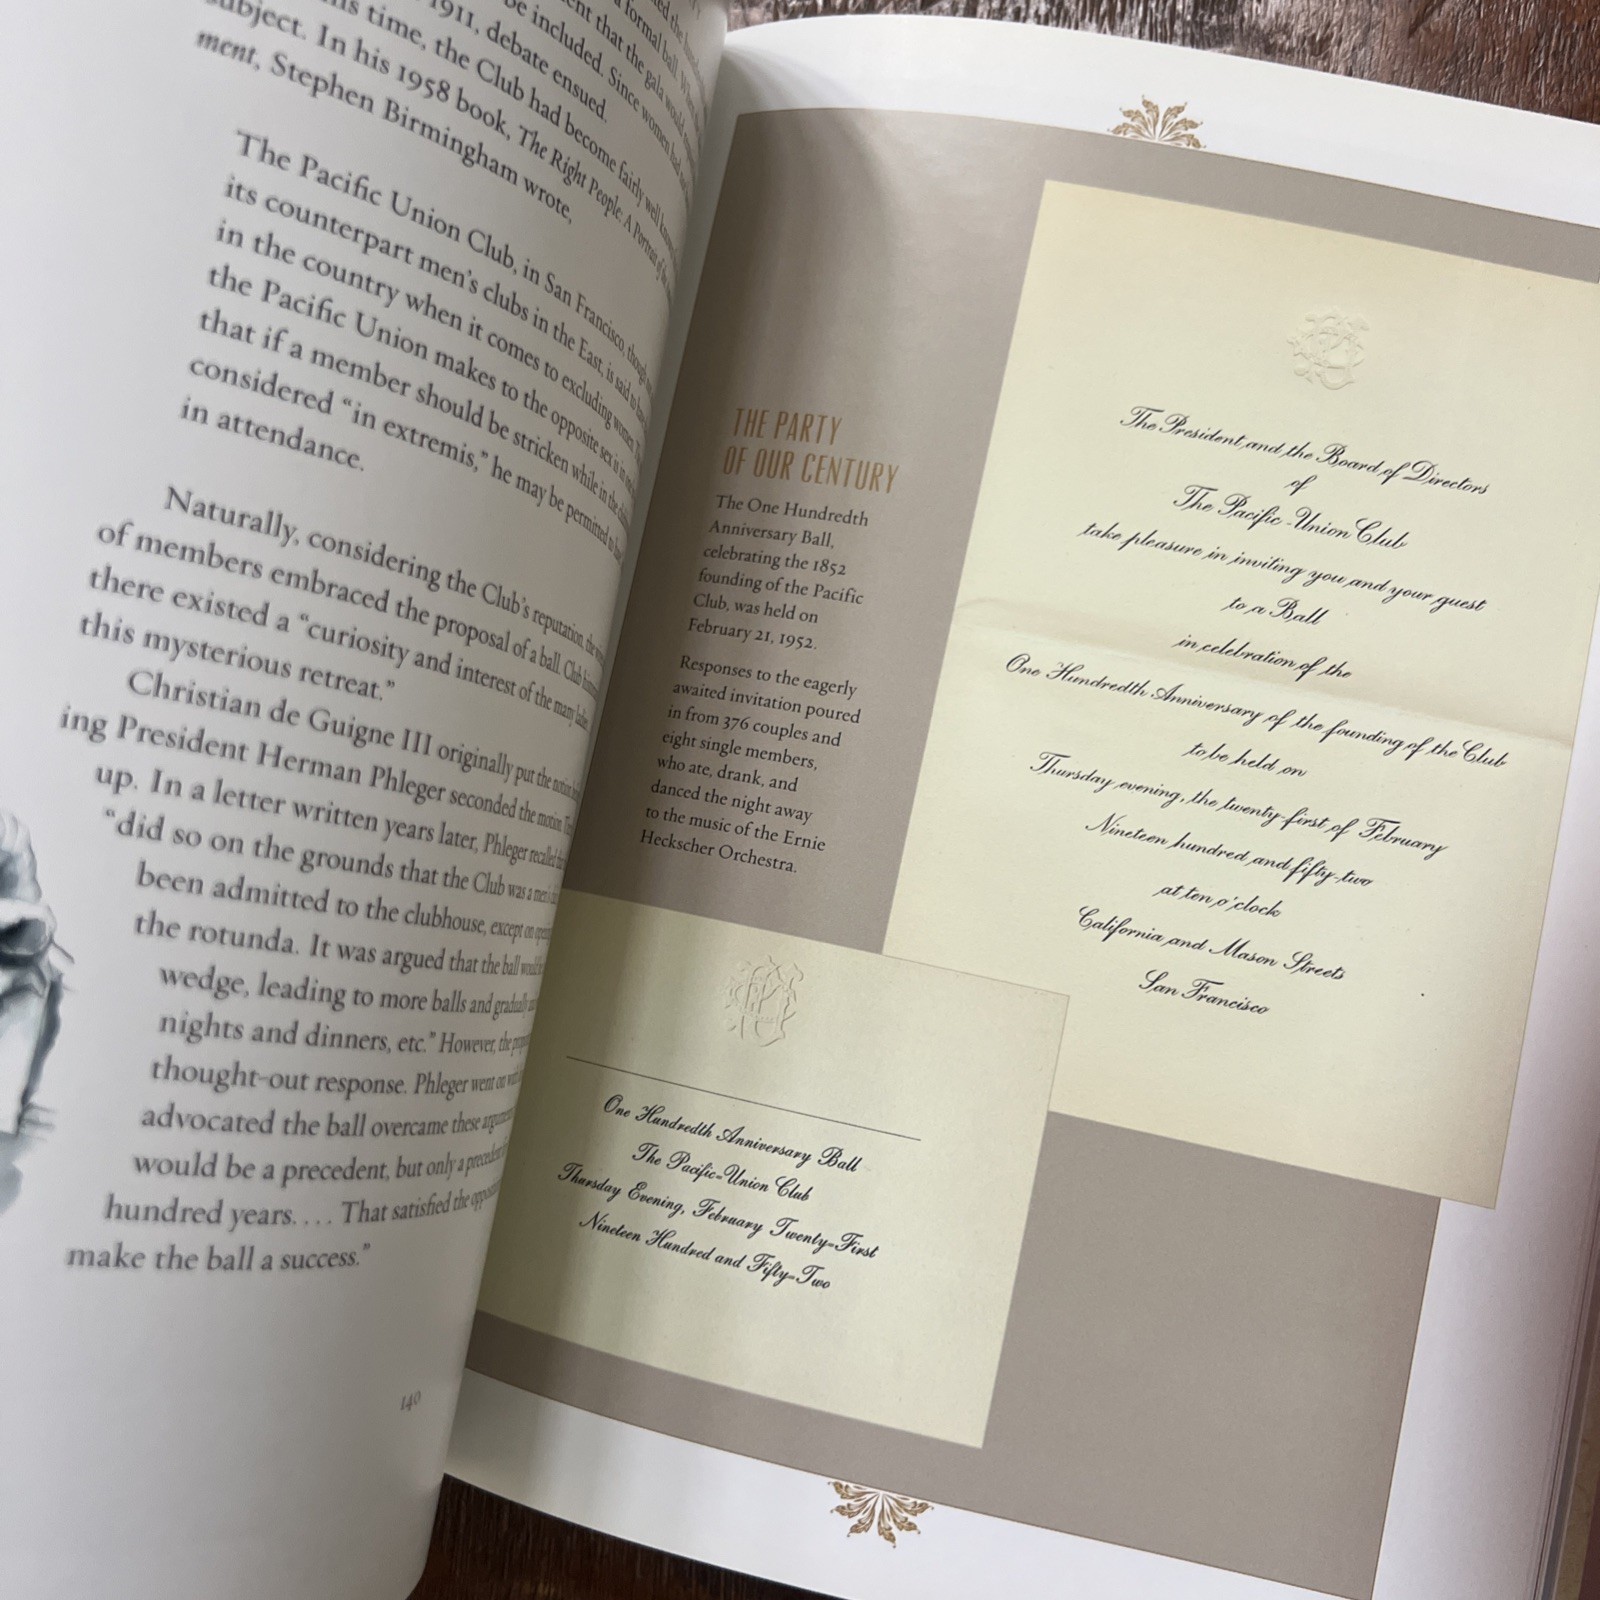 1911, debate ensued.
be included. Since women had
time, the Club had become fairly well known
subject. In his 1958 book, The Right People: A Portrait of the
ment, Stephen Birmingham wrote,
The Pacific Union Club, in San Francisco, though
its counterpart men's clubs in the East, is said to
in the country when it comes to excluding women. The
the Pacific Union makes to the opposite sex is in
that if a member should be stricken while in the
considered "in extremis," he may be permitted to
in attendance.
Naturally, considering the Club's reputation, the
of members embraced the proposal of a ball. Club
there existed a "curiosity and interest of the many ladies
this mysterious retreat."
Christian de Guigne III originally put the notion
ing President Herman Phleger seconded the motion.
up. In a letter written years later, Phleger recalled
"did so on the grounds that the Club was a men's
been admitted to the clubhouse, except on
the rotunda. It was argued that the ball would
wedge, leading to more balls and gradually
nights and dinners, etc." However, the
thought-out response. Phleger went on
advocated the ball overcame these
would be a precedent, but only a precedent
hundred years.... That satisfied the
make the ball a success."
140
THE PARTY
OF OUR CENTURY
The One Hundredth
Anniversary Ball,
celebrating the 1852
founding of the Pacific
Club, was held on
February 21, 1952.
Responses to the eagerly
awaited invitation poured
in from 376 couples and
eight single members,
who ate, drank, and
danced the night away
to the music of the Ernie
Heckscher Orchestra.
The President and the Board of Directors
of
The Pacific-Union Club
take pleasure in inviting you and your guest
to a Ball
in celebration of the
One Hundredth Anniversary of the founding of the Club
to be held on
Thursday evening, the twenty-first of February
Nineteen hundred and fifty-two
at ten o'clock
California and Mason Streets
San Francisco
One Hundredth Anniversary Ball
The Pacific-Union Club
Thursday Evening, February Twenty-First
Nineteen Hundred and Fifty-Two